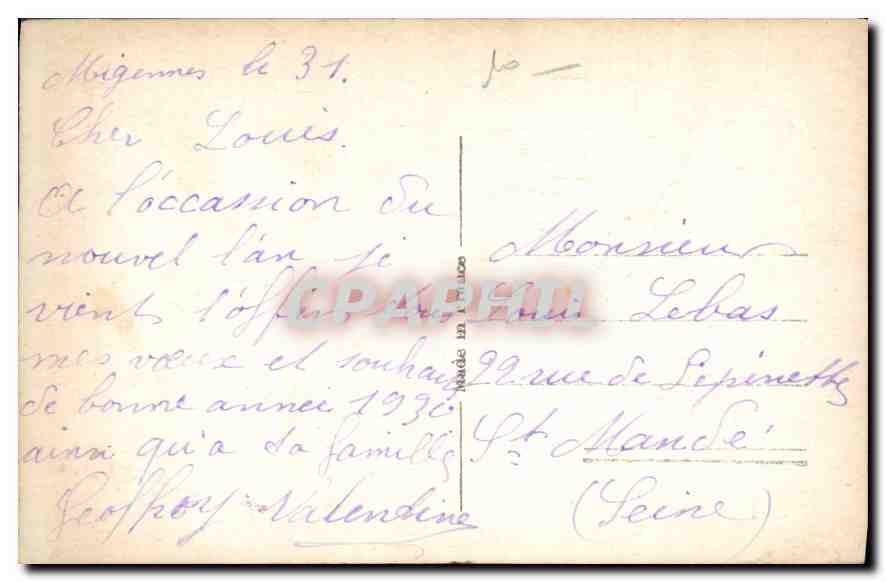 Migennes le 31.
Cher Louis.
A l'occassion du
nouvel l'an je
vient t'offrir tous
mes vœux et souhaits
de bonne année 1930
ainsi qu'a ta famille
Geoffroy Valentine
Made in France
CPAPHIL
Monsieur
Louis Lebas
22 rue de l'épinette
St Mandé
(Seine)